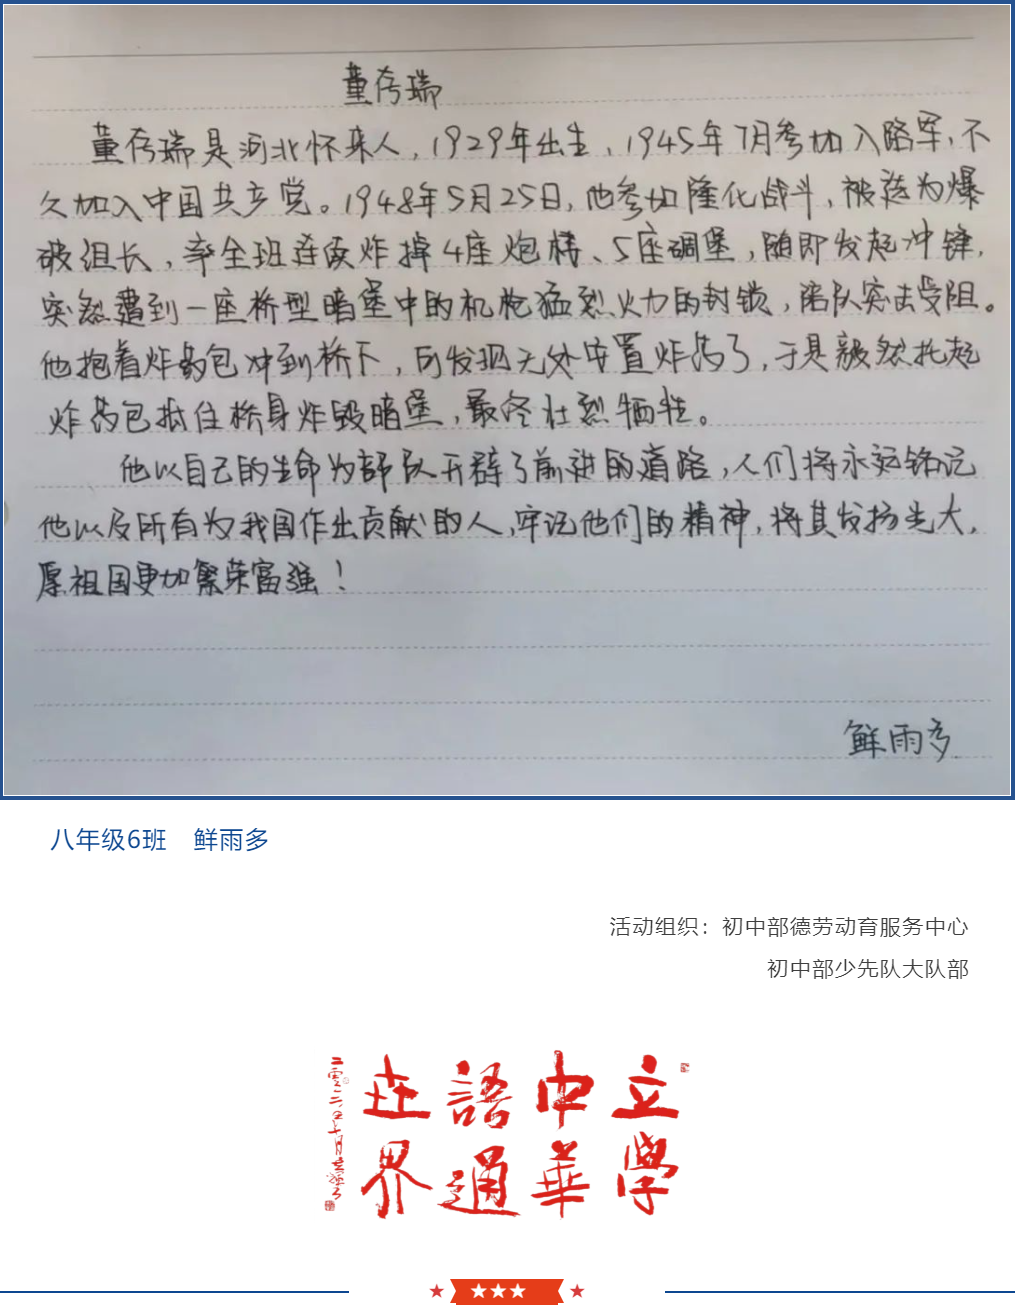 董存瑞
董存瑞是河北怀来人，1929年出生，1945年7月参加入路军，不
久加入中国共产党。1948年5月25日，他参加隆化战斗，被选为爆
破组长，率全班连续炸掉4座炮楼、5座碉堡，随即发起冲锋，
突然遭到一座桥型暗堡中的机枪猛烈火力的封锁，部队突击受阻。
他抱着炸药包冲到桥下，但发现无处安置炸药了，于是毅然托起
炸药包抵住桥身炸毁暗堡，最终壮烈牺牲。
他以自己的生命为部队开辟了前进的道路，人们将永远铭记
他以及所有为我国作出贡献的人，牢记他们的精神，将其发扬光大，
愿祖国更加繁荣富强！
鲜雨多
八年级6班 鲜雨多
活动组织：初中部德劳动育服务中心
初中部少先队大队部
立学
中华
語通
世界